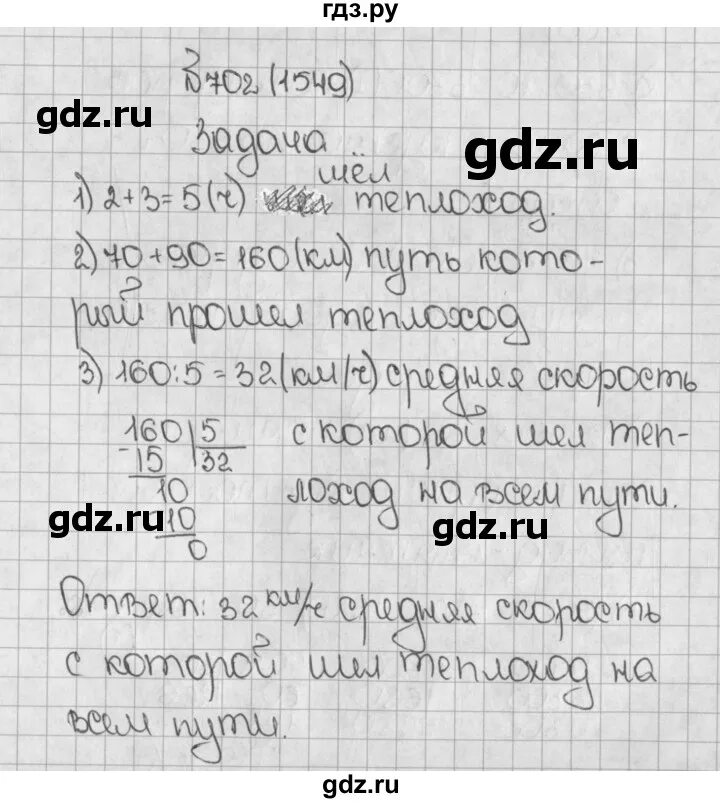 гдз.ру
№702 (1549)
gdz.ru
gdz.ru
Задача
шёл
1) 2+3=5(ч) теплоход.
2) 70+90=160(км) путь кото-
рый прошел теплоход
3) 160:5=32(км/ч) средняя скорость
160 5 с которой шел теп-
-15 32
10 лоход на всем пути.
gdz.ru
10
gdz.ru
0
Ответ: 32 км/ч средняя скорость
с которой шел теплоход на
всем пути.
gdz.ru